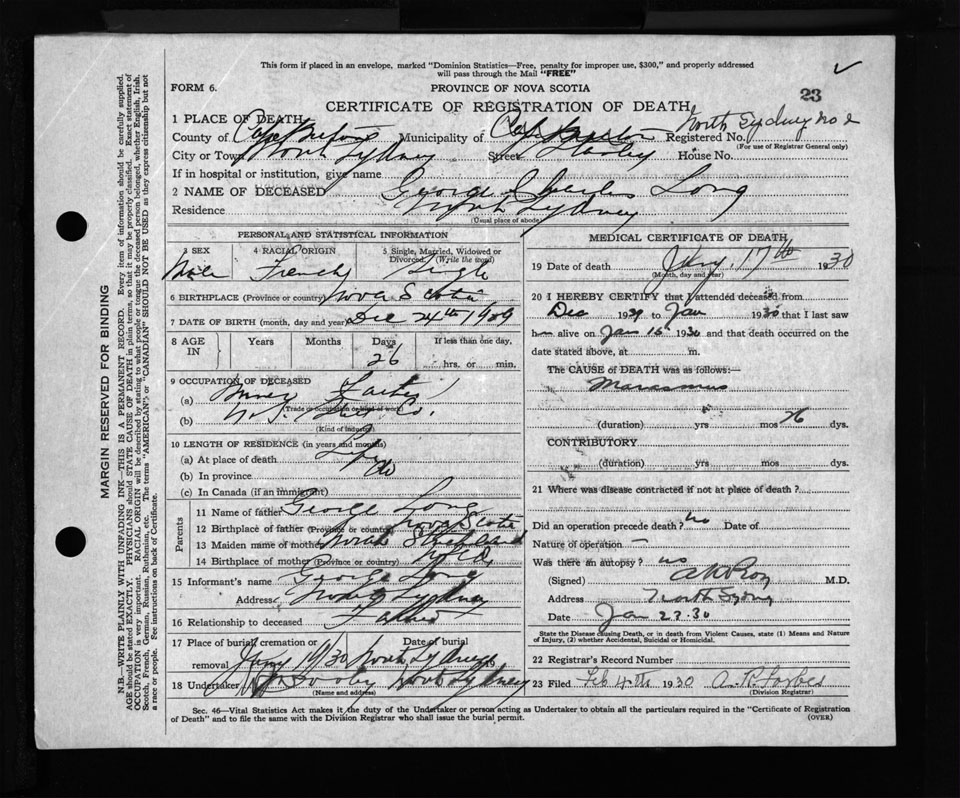 This form if placed in an envelope, marked "Dominion Statistics—Free, penalty for improper use, $300," and properly addressed
will pass through the Mail "FREE"
FORM 6.
PROVINCE OF NOVA SCOTIA
23
CERTIFICATE OF REGISTRATION OF DEATH
1 PLACE OF DEATH
North Sydney
County of Cape Breton Municipality of Cape Breton Registered No.
(For use of Registrar General only)
City or Town North Sydney Street Stanley House No.
If in hospital or institution, give name
2 NAME OF DECEASED George Charles Long
Residence North Sydney
(Usual place of abode)
PERSONAL AND STATISTICAL INFORMATION
3 SEX 4 RACIAL ORIGIN 5 Single, Married, Widowed or Divorced (Write the word)
Male French Single
6 BIRTHPLACE (Province or country) Nova Scotia
7 DATE OF BIRTH (month, day and year) Dec 24th 1929
8 AGE IN Years Months Days If less than one day,
26 hrs. or min.
9 OCCUPATION OF DECEASED
(a)
(Trade, occupation or kind of work)
(b)
(Kind of industry)
10 LENGTH OF RESIDENCE (in years and months)
(a) At place of death Life
(b) In province Do
(c) In Canada (if an immigrant)
Parents
11 Name of father George Long
12 Birthplace of father (Province or country) Nova Scotia
13 Maiden name of mother Strickland
14 Birthplace of mother (Province or country) Nfld
15 Informant's name George Long
Address North Sydney
16 Relationship to deceased Father
17 Place of burial, cremation or removal Date of burial
Jany 19/30 North Sydney
18 Undertaker North Sydney
(Name and address)
MEDICAL CERTIFICATE OF DEATH
19 Date of death Jany. 17th 1930
(Month, day and year)
20 I HEREBY CERTIFY that I attended deceased from
Dec 1929 to Jan 1930 that I last saw
him alive on Jan 15 1930 and that death occurred on the
date stated above, at m.
The CAUSE of DEATH was as follows:—
Marasmus
(duration) yrs mos 26 dys.
CONTRIBUTORY
(duration) yrs mos dys.
21 Where was disease contracted if not at place of death?
Did an operation precede death? no Date of
Nature of operation —
Was there an autopsy? no
(Signed) M.D.
Address North Sydney
Date Jan 22.30
State the Disease causing Death, or in death from Violent Causes, state (1) Means and Nature
of Injury, (2) whether Accidental, Suicidal or Homicidal.
22 Registrar's Record Number
23 Filed Feb 4th 1930 A. R. Forbes
(Division Registrar)
Sec. 46—Vital Statistics Act makes it the duty of the Undertaker or person acting as Undertaker to obtain all the particulars required in the "Certificate of Registration
of Death" and to file the same with the Division Registrar who shall issue the burial permit.
(OVER)
MARGIN RESERVED FOR BINDING
N.B.—WRITE PLAINLY WITH UNFADING INK—THIS IS A PERMANENT RECORD. Every item of information should be carefully supplied.
AGE should be stated EXACTLY. PHYSICIANS should STATE CAUSE OF DEATH in plain terms, so that it may be properly classified. Exact statement of
OCCUPATION is very important. RACIAL ORIGIN will be described by stating to what people or tongue the deceased person belonged, whether English, Irish,
Scotch, French, German, Russian, Ruthenian, etc. The terms "AMERICAN" or "CANADIAN" SHOULD NOT BE USED as they express citizenship but not
a race or people. See instructions on back of Certificate.